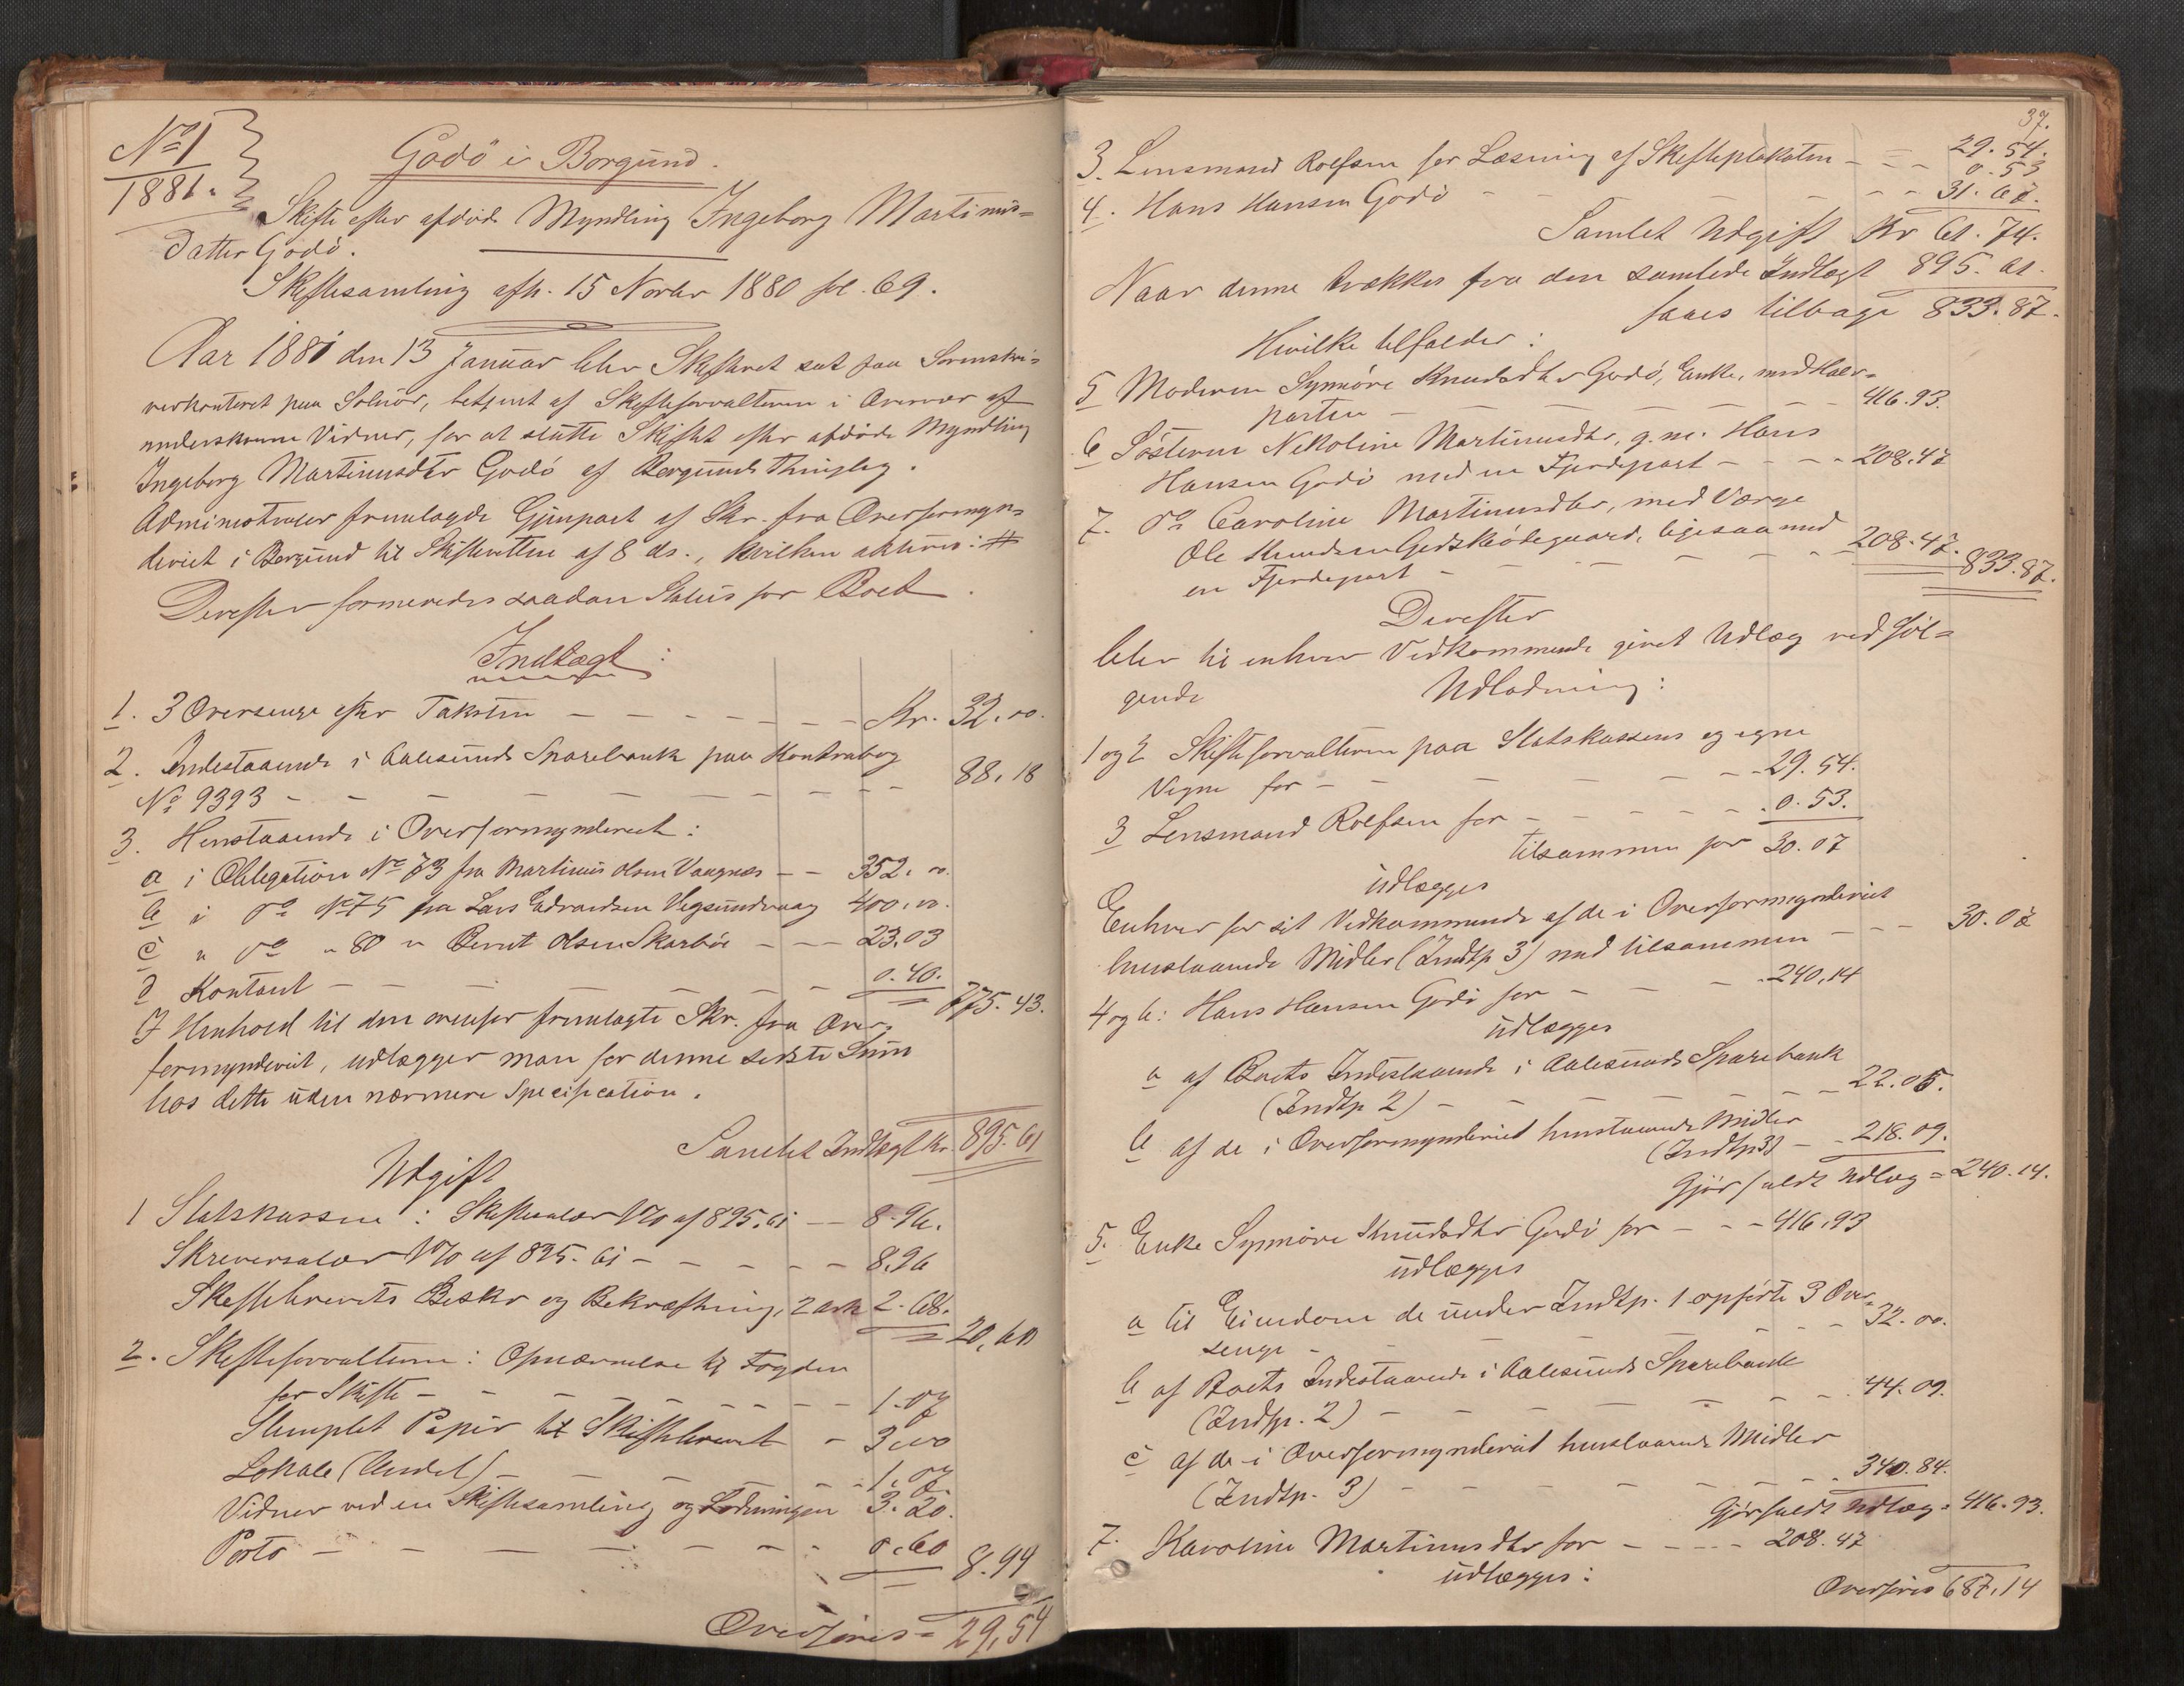 No 1
1881.
Godö i Borgund.
Skifte efter afdöde Myndling Ingeborg Martinus=
datter Godö.
Skiftesamling afh. 15 Novbr 1880 fol. 69.
Aar 1881 den 13 Januar blev Skifteret sat paa Sorenskri=
verkontoret paa Solnör, betjent af Skifteforvalteren i Overvær af
underskrevne Vidner, for at slutte Skiftet efter afdöde Myndling
Ingeborg Martinusdtr Godö af Borgunds Thinglag.
Administrator fremlagde Gjenpart af Skr. fra Overformyn=
deriet i Borgund til Skifteretten af 8 ds., hvilken akteres: #
Derefter formeredes saadan Status for Boet.
Indtægt:
1. 3 Oversenge efter Taksten - - - - - - Kr. 32.00.
2. Indestaaende i Aalesunds Sparebank paa Kontrabog
No 9393 - - - - - - - - 88.18
3. Henstaaende i Overformynderiet:
a i Obligation No 73 fra Martinus Olsen Vaagnæs - - 352.00.
b i do No 75 fra Lars Edvardsen Vegsundvaag 400.00.
c " do " 80 " Bernt Olsen Skarbö - - - 23.03
d Kontant - - - - - - - 0.40.
775.43.
I Henhold til den ovenfor fremlagte Skr. fra Over-
formynderiet, udlægger man for denne sidste Sum
hos dette uden nærmere Specification.
Samlet Indtægt Kr. 895.61
Udgift
1 Statskassen: Skiftesalær 1% af 895.61 - - 8.96.
Skriversalær 1% af 895.61 - - - - - 8.96
Skiftebrevets Beskr og Bekræftning, 2 ark 2.68.
20,60
2. Skifteforvalteren: Opnævnelse til Fogden
for Skifte - - - - - - - 1.07
Stemplet Papir til Skiftebrevet - 3.00
Lokale (Andel) - - - - - - 1.07.
Vidner ved en Skiftesamling og Lodningen 3.20.
Porto - - - - - - - 0.60
8.94
Overföres = 29,54
37.
29.54.
3. Lensmand Rolfsen for Læsning af Skifteplakaten - - - 0.53
4. Hans Hansen Godö - - - - - 31.67.
Samlet Udgift Kr 61.74.
Naar denne trækkes fra den samlede Indtægt 895.61.
faaes tilbage 833.87.
Hvilke tilfalder:
5 Moderen Synnöve Knudsdtr Godö, Enke, med Halv=
parten - - - - - - - 416.93.
6 Sösteren Nikoline Martinusdtr, g.m. Hans
Hansen Godö med en Fjerdepart - - - - 208.47
7. do Caroline Martinusdtr, med Værge
Ole Knudsen Gjedsködegaard, ligesaa med
en Fjerdepart - - - - - - 208.47. 833.87.
Derefter
blev til enhver Vedkommende givet Udlæg ved föl=
gende Udlodning:
1 og 2 Skifteforvalteren paa Statskassens og egne
Vegne for - - - - - - 29.54.
3 Lensmand Rolfsen for - - - - - 0.53.
tilsammen for 30.07
udlægges
Enhver for sit Vedkommende af de i Overformynderiet
henstaaende Midler (Indtp 3) med tilsammen - - - 30.07
4 og 6: Hans Hansen Godö for - - - 240.14
udlægges
a af Boets Indestaaende i Aalesunds Sparebank
(Indtp 2) - - - - - - - 22.05.
b af de i Overformynderiet henstaaende Midler
(Indtp 3) - - 218.09.
Gjör fuldt Udlæg = 240.14.
5. Enke Synnöve Knudsdtr Godö for - - - 416.93
udlægges
a til Eiendom de under Indtp. 1 opförte 3 Over=
senge - - - - - - - 32.00.
b af Boets Indestaaende i Aalesunds Sparebank
(Indtp. 2) - - - - - - - 44.09.
c af de i Overformynderiet henstaaende Midler
(Indtp. 3) - - - - - - - 340.84.
Gjör fuldt Udlæg = 416.93.
7. Karoline Martinusdtr for - - - - - 208.47
udlægges:
Overföres 687,14